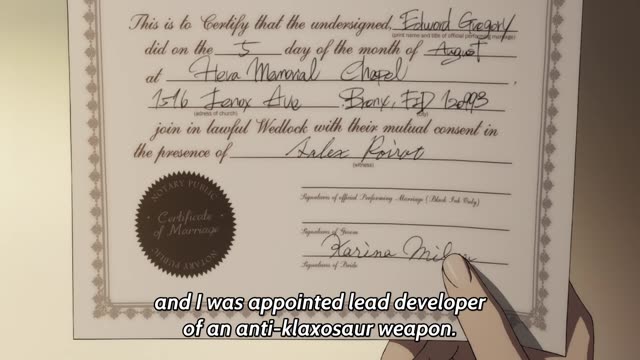 This is to Certify that the undersigned, Edward Gregory
(print name and title of official performing marriage)
did on the 5 day of the month of August
at Hera Memorial Chapel
Ave Bronx,
(adress of church)
join in lawful Wedlock with their mutual consent in
the presence of Alex
(witness)
NOTARY PUBLIC
Certificate
of Marriage
NOTARY PUBLIC
Signatures of official Performing Marriage (Black Ink Only)
Signatures of Groom
Karina
Signatures of Bride
and I was appointed lead developer
of an anti-klaxosaur weapon.